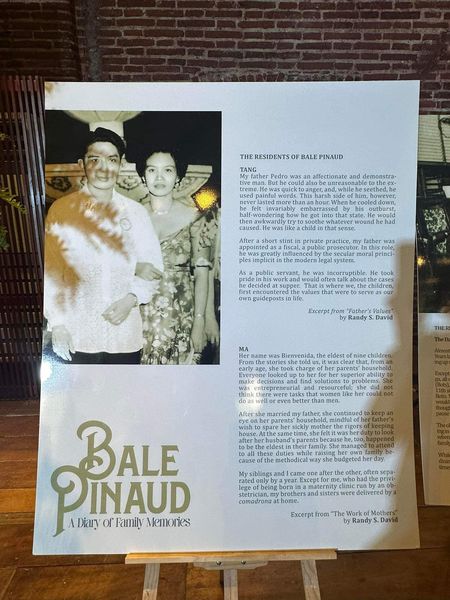 THE RESIDENTS OF BALE PINAUD
TANG
My father Pedro was an affectionate and demonstra-
tive man. But he could also be unreasonable to the ex-
treme. He was quick to anger, and, while he seethed, he
used painful words. This harsh side of him, however,
never lasted more than an hour. When he cooled down,
he felt invariably embarrassed by his outburst,
half-wondering how he got into that state. He would
then awkwardly try to soothe whatever wound he had
caused. He was like a child in that sense.
After a short stint in private practice, my father was
appointed as a fiscal, a public prosecutor. In this role,
he was greatly influenced by the secular moral princi-
ples implicit in the modern legal system.
As a public servant, he was incorruptible. He took
pride in his work and would often talk about the cases
he decided at supper. That is where we, the children,
first encountered the values that were to serve as our
own guideposts in life.
Excerpt from "Father's Values"
by Randy S. David
MA
Her name was Bienvenida, the eldest of nine children.
From the stories she told us, it was clear that, from an
early age, she took charge of her parents' household.
Everyone looked up to her for her superior ability to
make decisions and find solutions to problems. She
was entrepreneurial and resourceful; she did not
think there were tasks that women like her could not
do as well or even better than men.
After she married my father, she continued to keep an
eye on her parents' household, mindful of her father's
wish to spare her sickly mother the rigors of keeping
house. At the same time, she felt it was her duty to look
after her husband's parents because he, too, happened
to be the eldest in their family. She managed to attend
to all these duties while raising her own family be-
cause of the methodical way she budgeted her day.
My siblings and I came one after the other, often sepa-
rated only by a year. Except for me, who had the privi-
lege of being born in a maternity clinic run by an ob-
stetrician, my brothers and sisters were delivered by a
comadrona at home.
Excerpt from "The Work of Mothers"
by Randy S. David
BALE
PINAUD
A Diary of Family Memories